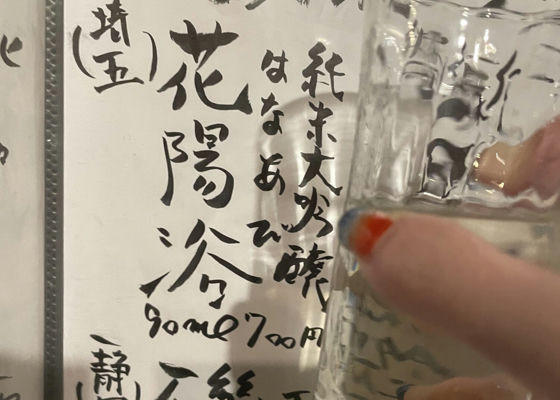 純米大吟醸
はなあび
花陽浴
(埼玉)
90ml 700円
(静